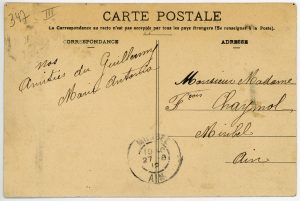 347 III
CARTE POSTALE
La Correspondance au recto n'est pas acceptée par tous les pays étrangers (Se renseigner à la poste)
CORRESPONDANCE
ADRESSE
nos
Amitiés du Guillaumy
Marie Antonia
Monsieur Madame
Fçois Chaynol
Miribel
Ain
27 -8
AIN